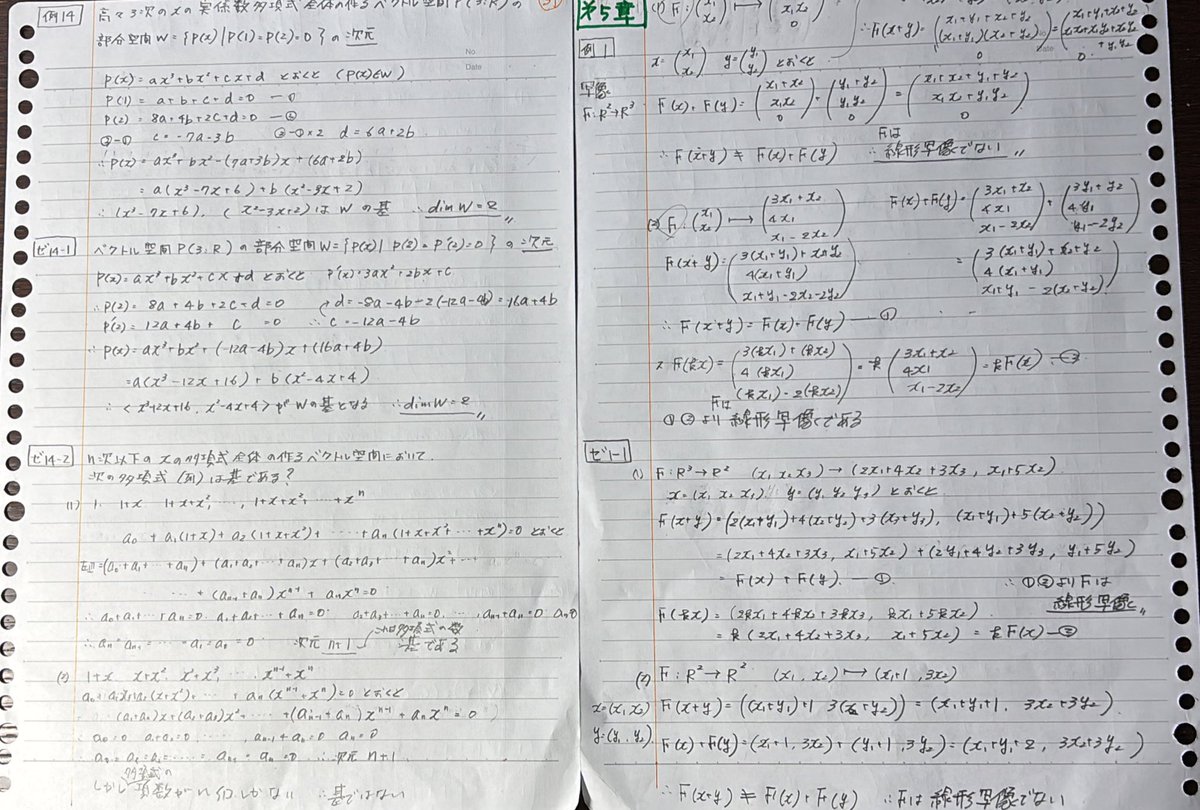 例14 高々3次のxの実係数多項式全体の作るベクトル空間P(3:R)の
部分空間W={P(x)|P(1)=P(2)=0}の次元
P(x)=ax³+bx²+cx+d とおくと (P(x)∈W)
P(1)= a+b+c+d=0 —①
P(2)= 8a+4b+2c+d=0 —②
②-① c=-7a-3b ②-①×2 d=6a+2b
∴P(x)=ax³+bx²-(7a+3b)x+(6a+2b)
=a(x³-7x+6)+b(x²-3x+2)
∴(x³-7x+6), (x²-3x+2)はWの基 ∴dimW=2〃
ゼ14-1 ベクトル空間P(3:R)の部分空間W={P(x)|P(2)=P'(2)=0}の次元
P(x)=ax³+bx²+cx+d とおくと P'(x)=3ax²+2bx+c
∴P(2)= 8a+4b+2c+d=0 d=-8a-4b-2(-12a-4b)=16a+4b
P'(2)= 12a+4b+ c =0 ∴c=-12a-4b
∴P(x)=ax³+bx²+(-12a-4b)x+(16a+4b)
=a(x³-12x+16)+b(x²-4x+4)
∴<x³-12x+16, x²-4x+4>がWの基となる ∴dimW=2〃
ゼ14-2 n次以下のxの多項式全体の作るベクトル空間において.
次の多項式(列)は基である?
(1) 1. 1+x 1+x+x², ‥‥, 1+x+x²+‥‥+xⁿ
a₀+a₁(1+x)+a₂(1+x+x²)+‥‥+aₙ(1+x+x²‥‥+xⁿ)=0 とおくと
左辺=(a₀+a₁+‥+aₙ)+(a₁+a₂+‥‥+aₙ)x+(a₂+a₃+‥‥+aₙ)x²+‥‥
+(aₙ₋₁+aₙ)xⁿ⁻¹+aₙxⁿ=0
∴a₀+a₁+‥+aₙ=0. a₁+a₂+‥+aₙ=0 a₂+a₃+‥+aₙ=0, ‥, aₙ₋₁+aₙ=0 aₙ=0
∴aₙ=aₙ₋₁=‥‥=a₁=a₀=0 次元 n+1 基である
(2) 1+x x+x² x²+x³, ‥‥ xⁿ⁻¹+xⁿ
‥‥+aₙ(xⁿ⁻¹+xⁿ)=0 とおくと
‥‥+(aₙ₋₁+aₙ)xⁿ⁻¹+aₙxⁿ=0
‥‥, aₙ₋₁+aₙ=0 aₙ=0
‥‥=aₙ₋₁=aₙ=0 ∴次元 n+1
多項式の
しかし項数がn個しかない ∴基ではない
第5章
例1 (1) F:(x₁ x₂)⟼(x₁x₂ 0)
∴F(x+y)=(x₁+y₁+x₂+y₂ (x₁+y₁)(x₂+y₂) 0)
x=(x₁ x₂) y=(y₁ y₂) とおくと
写像 F:R²→R³
F(x)+F(y)=(x₁+x₂ x₁x₂ 0)+(y₁+y₂ y₁y₂ 0)=(x₁+x₂+y₁+y₂ x₁x₂+y₁y₂ 0)
∴F(x+y)≠F(x)+F(y) ∴Fは線形写像でない〃
(2) F:(x₁ x₂)⟼(3x₁+x₂ 4x₁ x₁-2x₂) F(x)+F(y)=(3x₁+x₂ 4x₁ x₁-2x₂)+(3y₁+y₂ 4y₁ y₁-2y₂)
F(x+y)=(3(x₁+y₁)+x₂+y₂ 4(x₁+y₁) x₁+y₁-2x₂-2y₂) =(3(x₁+y₁)+x₂+y₂ 4(x₁+y₁) x₁+y₁-2(x₂+y₂))
∴F(x+y)=F(x)+F(y) —①
又F(kx)=(3(kx₁)+(kx₂) 4(kx₁) (kx₁)-2(kx₂))=k(3x₁+x₂ 4x₁ x₁-2x₂)=kF(x) —②
①②よりFは線形写像である
ゼ1-1
(1) F:R³→R² (x₁ x₂ x₃)→(2x₁+4x₂+3x₃, x₁+5x₂)
x=(x₁ x₂ x₃) y=(y₁ y₂ y₃)とおくと
F(x+y)=(2(x₁+y₁)+4(x₂+y₂)+3(x₃+y₃), (x₁+y₁)+5(x₂+y₂))
=(2x₁+4x₂+3x₃, x₁+5x₂)+(2y₁+4y₂+3y₃, y₁+5y₂)
=F(x)+F(y). —① ∴①②よりFは
線形写像〃
F(kx)=(2kx₁+4kx₂+3kx₃, kx₁+5kx₂)
=k(2x₁+4x₂+3x₃, x₁+5x₂)=kF(x) —②
(2) F:R²→R² (x₁, x₂)⟼(x₁+1, 3x₂)
x=(x₁,x₂) F(x+y)=((x₁+y₁)+1 3(x₂+y₂))=(x₁+y₁+1, 3x₂+3y₂)
y=(y₁,y₂) F(x)+F(y)=(x₁+1, 3x₂)+(y₁+1, 3y₂)=(x₁+y₁+2, 3x₂+3y₂)
∴F(x+y)≠F(x)+F(y) ∴Fは線形写像でない